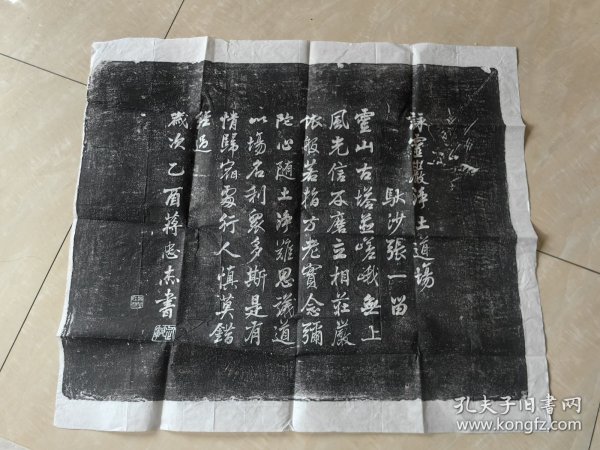 詠靈巖淨土道場
馱沙張一留
靈山古塔並嵯峨無上
風光信不磨立相莊嚴
恢般若指方老實念彌
陀心隨土淨難思議道
以場名利眾多斯是有
情歸宿處行人慎莫錯
經過
歲次乙酉蔣忠杰書
孔夫子旧书网
www.kongfz.com